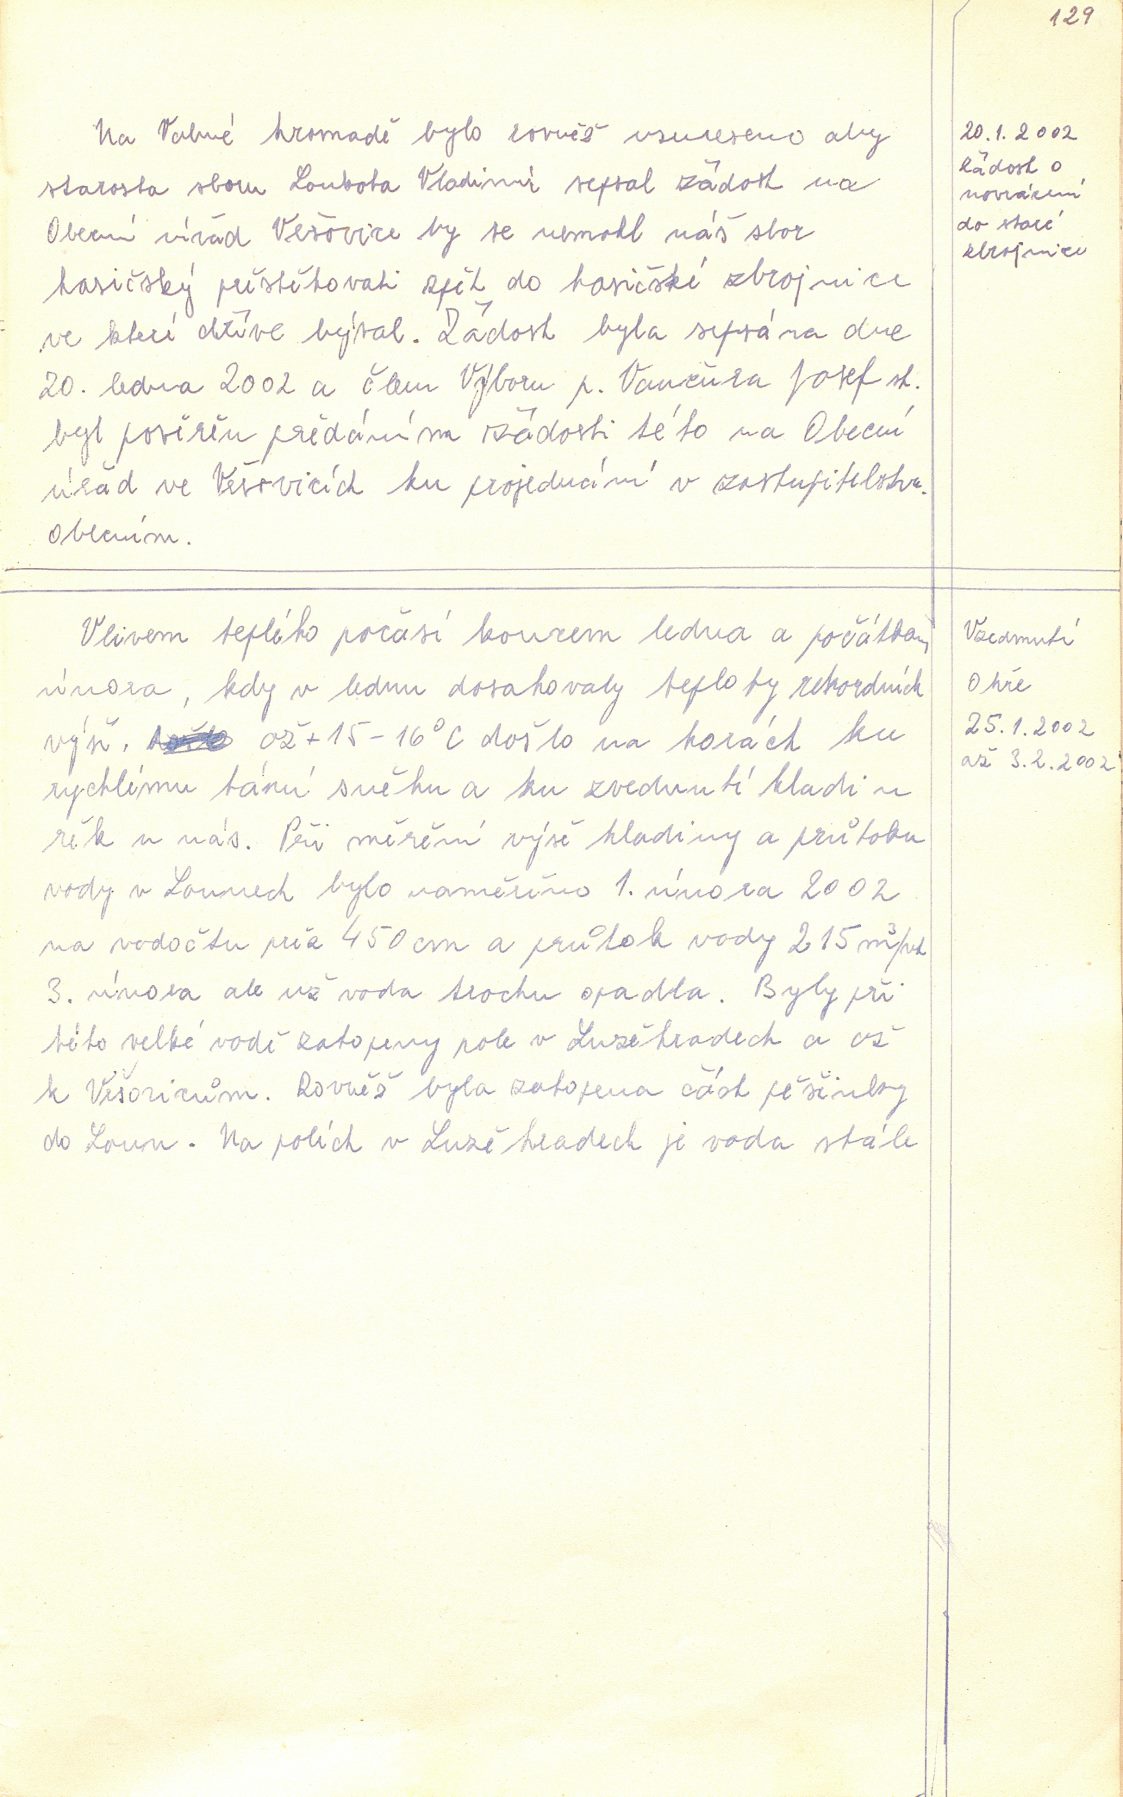 129
Na Valné hromadě bylo rovněž usneseno aby
starosta sboru Loubota Vladimír sepsal žádost na
Obecní úřad Vešovice by se nemohl náš sbor
hasičský přestěhovati zpět do hasičské zbrojnice
ve které dříve býval. Žádost byla sepsána dne
20. ledna 2002 a člen Výboru p. Vančura Josef st.
byl pověřěn předáním žádosti této na Obecní
úřad ve Vešovicích ku projednání v zastupitelstvu
Obecním.
20.1.2002
žádost o
navrácení
do staré
zbrojnice
Vlivem teplého počasí kourem ledna a počátkem
února, kdy v lednu dosahovaly teploty rekordních
výší. až +15-16°C došlo na horách ku
rychlému tání sněhu a ku zvednutí hladin
řěk u nás. Při měřění výše hladiny a průtoku
vody v Lounech bylo naměřěno 1. února 2002
na vodočtu přes 450 cm a průtok vody 215 m³/vt
3. února ale už voda trochu opadla. Byly při
této velké vodě zatopeny pole v Luzěhradech a až
k Vešovicům. Rovněž byla zatopena část pěšinky
do Loun. Na polích v Luzěhradech je voda stále
Vzedmutí
Ohře
25.1.2002
až 3.2.2002